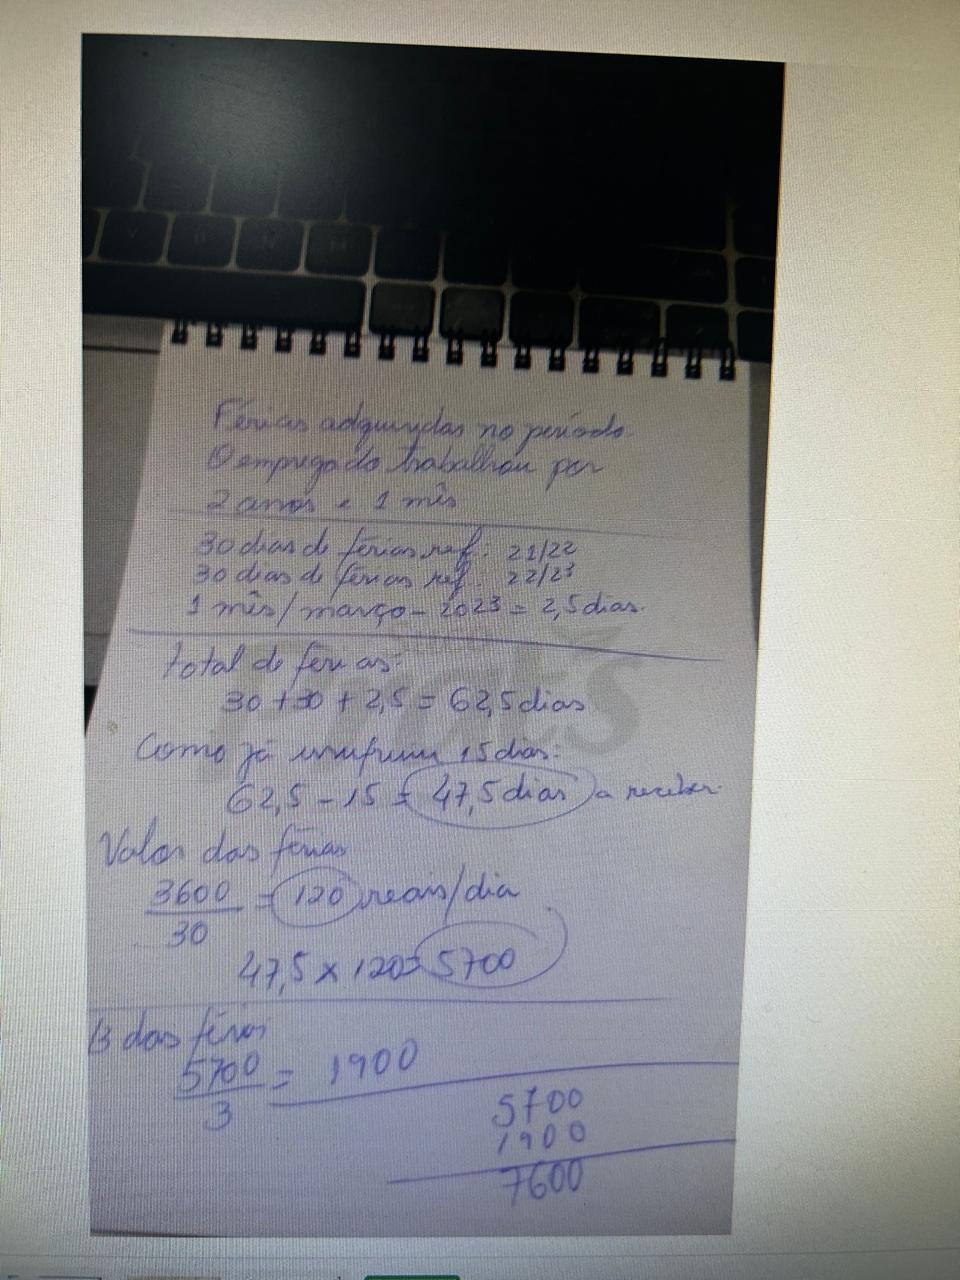 Férias adquirydas no período
O empregado trabalhou por
2 anos e 1 mês
30 dias de férias ref: 21/22
30 dias de férias ref: 22/23
1 mês/março - 2023 = 2,5 dias.
total de férias:
30 + 30 + 2,5 = 62,5 dias
Como já 15 dias:
62,5 - 15 = 47,5 dias a receber
Valor das férias
3600 = 120 reais/dia
30
47,5 x 120 = 5700
1/3 das férias
5700 = 1900
3
5700
1900
7600